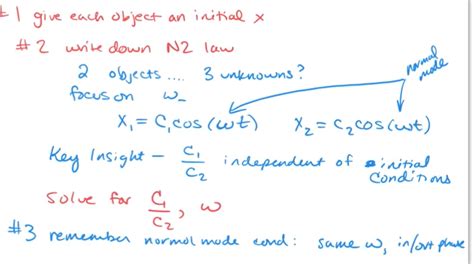 #1 give each object an initial x
#2 write down N2 law
2 objects .... 3 unknowns?
normal mode
focus on ω_
x₁ = C₁cos(ωt) x₂ = C₂cos(ωt)
Key Insight - C₁/C₂ independent of initial conditions
Solve for C₁/C₂, ω
#3 remember normal mode cond: same ω, in/out phase